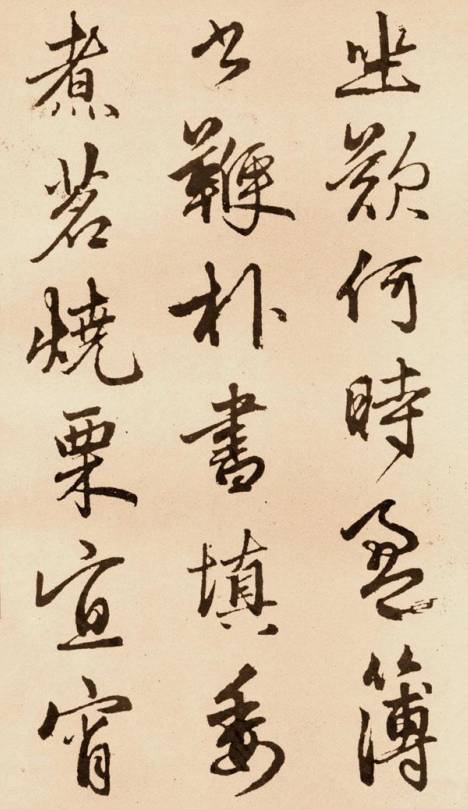 坐歎何時盈簿
书鞭朴晝填委
煮茗燒栗宜宵